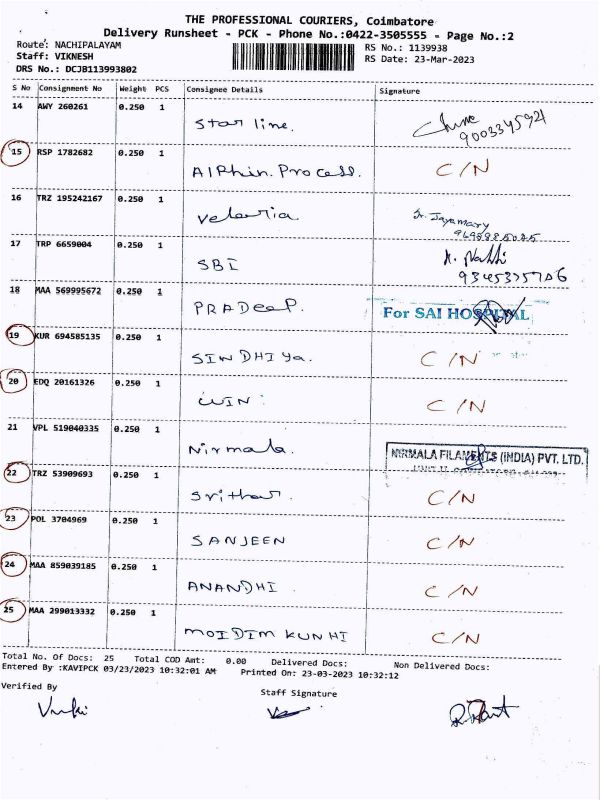 THE PROFESSIONAL COURIERS, Coimbatore
Delivery Runsheet - PCK - Phone No.:0422-3505555 - Page No.:2
Route: NACHIPALAYAM RS No.: 1139938
Staff: VIKNESH RS Date: 23-Mar-2023
DRS No.: DCJB113993802
S No Consignment No Weight PCS Consignee Details Signature
14 AWY 260261 0.250 1
Star line. 9003345921
15 RSP 1782682 0.250 1
AlPhin. Process. C/N
16 TRZ 195242167 0.250 1
Velavia Sr. Jayamary
17 TRP 6659004 0.250 1
SBI
18 MAA 569995672 0.250 1
PRADeeP. For SAI HOSPITAL
19 KUR 694585135 0.250 1
SINDHIya. C/N
20 EDQ 20161326 0.250 1
WIN : C/N
21 VPL 519040335 0.250 1
Nirmala. NIRMALA FILAMENTS (INDIA) PVT. LTD.
22 TRZ 53909693 0.250 1
Srithar. C/N
23 POL 3704969 0.250 1
SANJEEN C/N
24 MAA 859039185 0.250 1
ANANDHI C/N
25 MAA 299013332 0.250 1
MOIDIM KUNHI C/N
Total No. Of Docs: 25 Total COD Amt: 0.00 Delivered Docs: Non Delivered Docs:
Entered By :KAVIPCK 03/23/2023 10:32:01 AM Printed On: 23-03-2023 10:32:12
Verified By Staff Signature